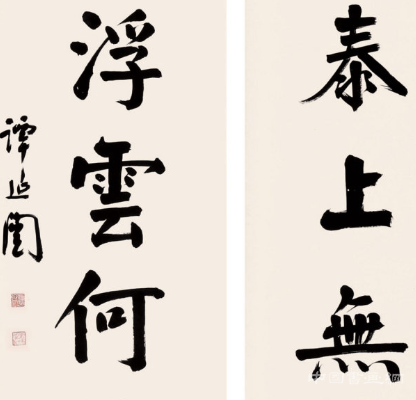 泰上無
浮雲何
谭延闓